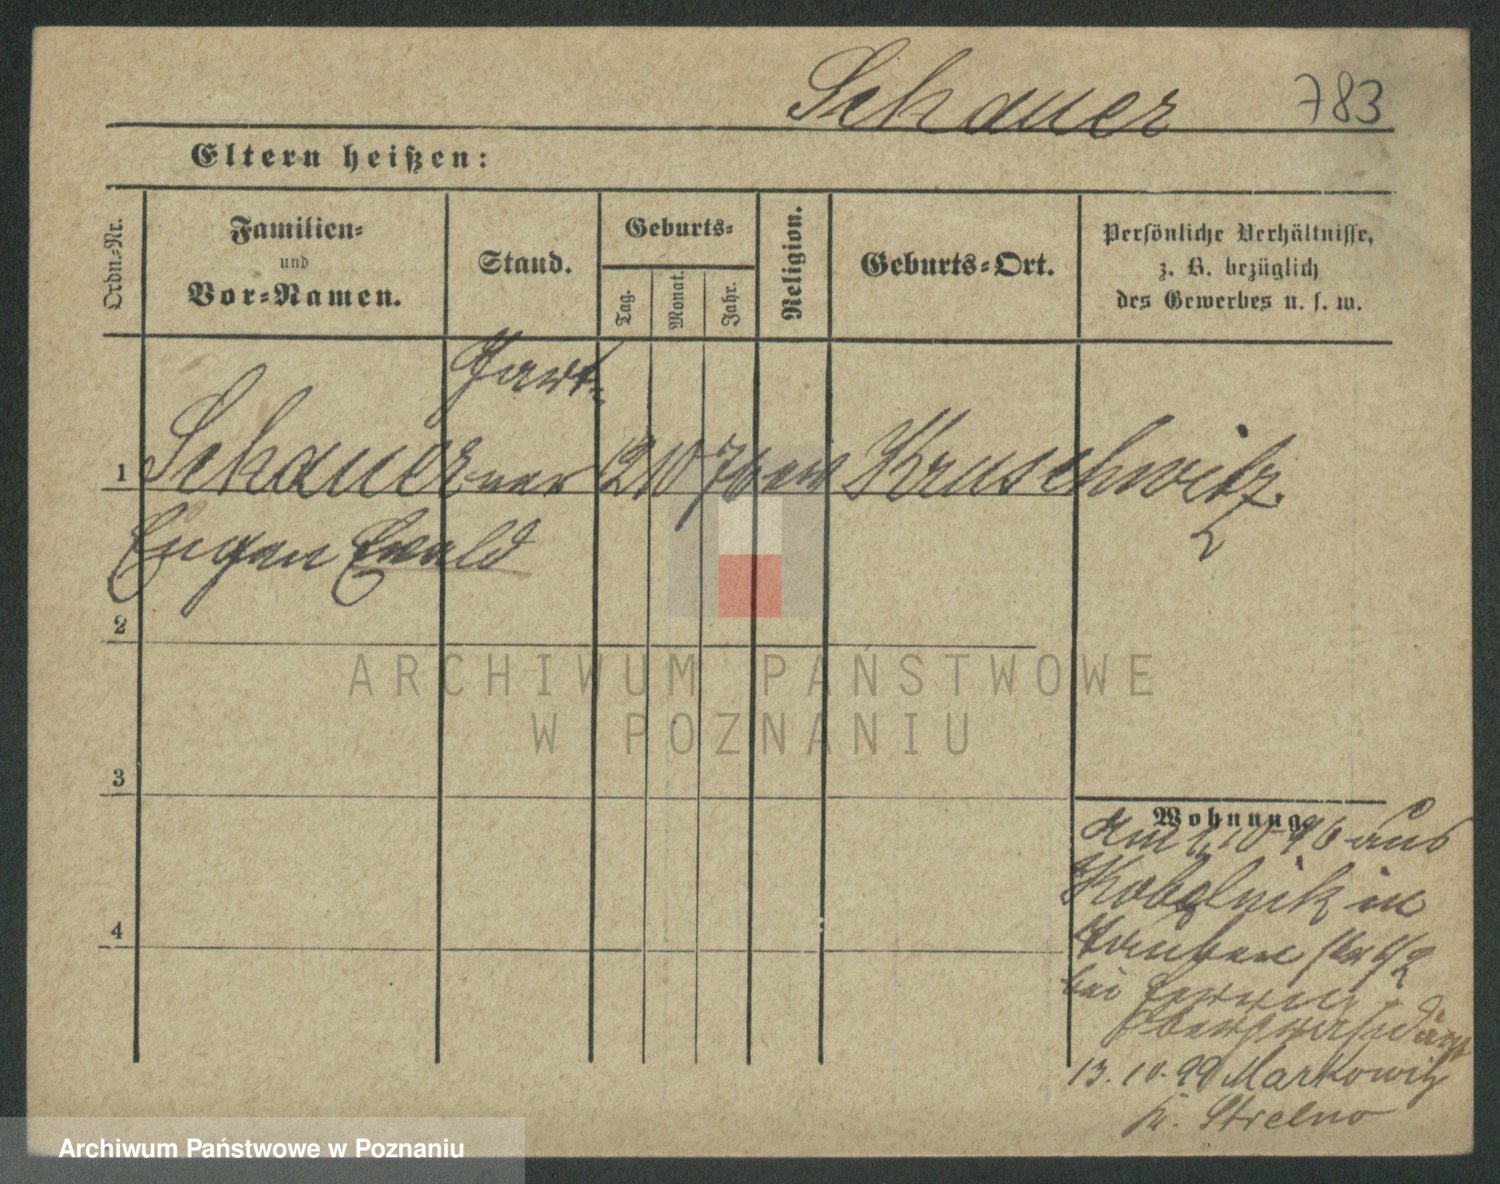 Schauer 783
Eltern heißen:
Ordn.-Nr.
Familien-
und
Vor-Namen.
Stand.
Geburts-
Tag.
Monat.
Jahr.
Religion.
Geburts-Ort.
Persönliche Verhältnisse,
z. B. bezüglich
des Gewerbes u. s. w.
Gärt-
1 Schauer ner 12 10 76 ev Kruschwitz
Eugen Ewald
2
3
4
Wohnung
am 1/10 96 aus
Kobelnik in
bei
13. 10. 99 Markowitz
Kr. Strelno
ARCHIWUM PAŃSTWOWE
W POZNANIU
Archiwum Państwowe w Poznaniu